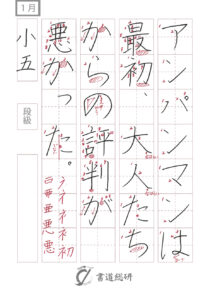 アンパンマンは
最初、大人たち
からの評判が
悪かった。
1月
小五
段級
書道総研